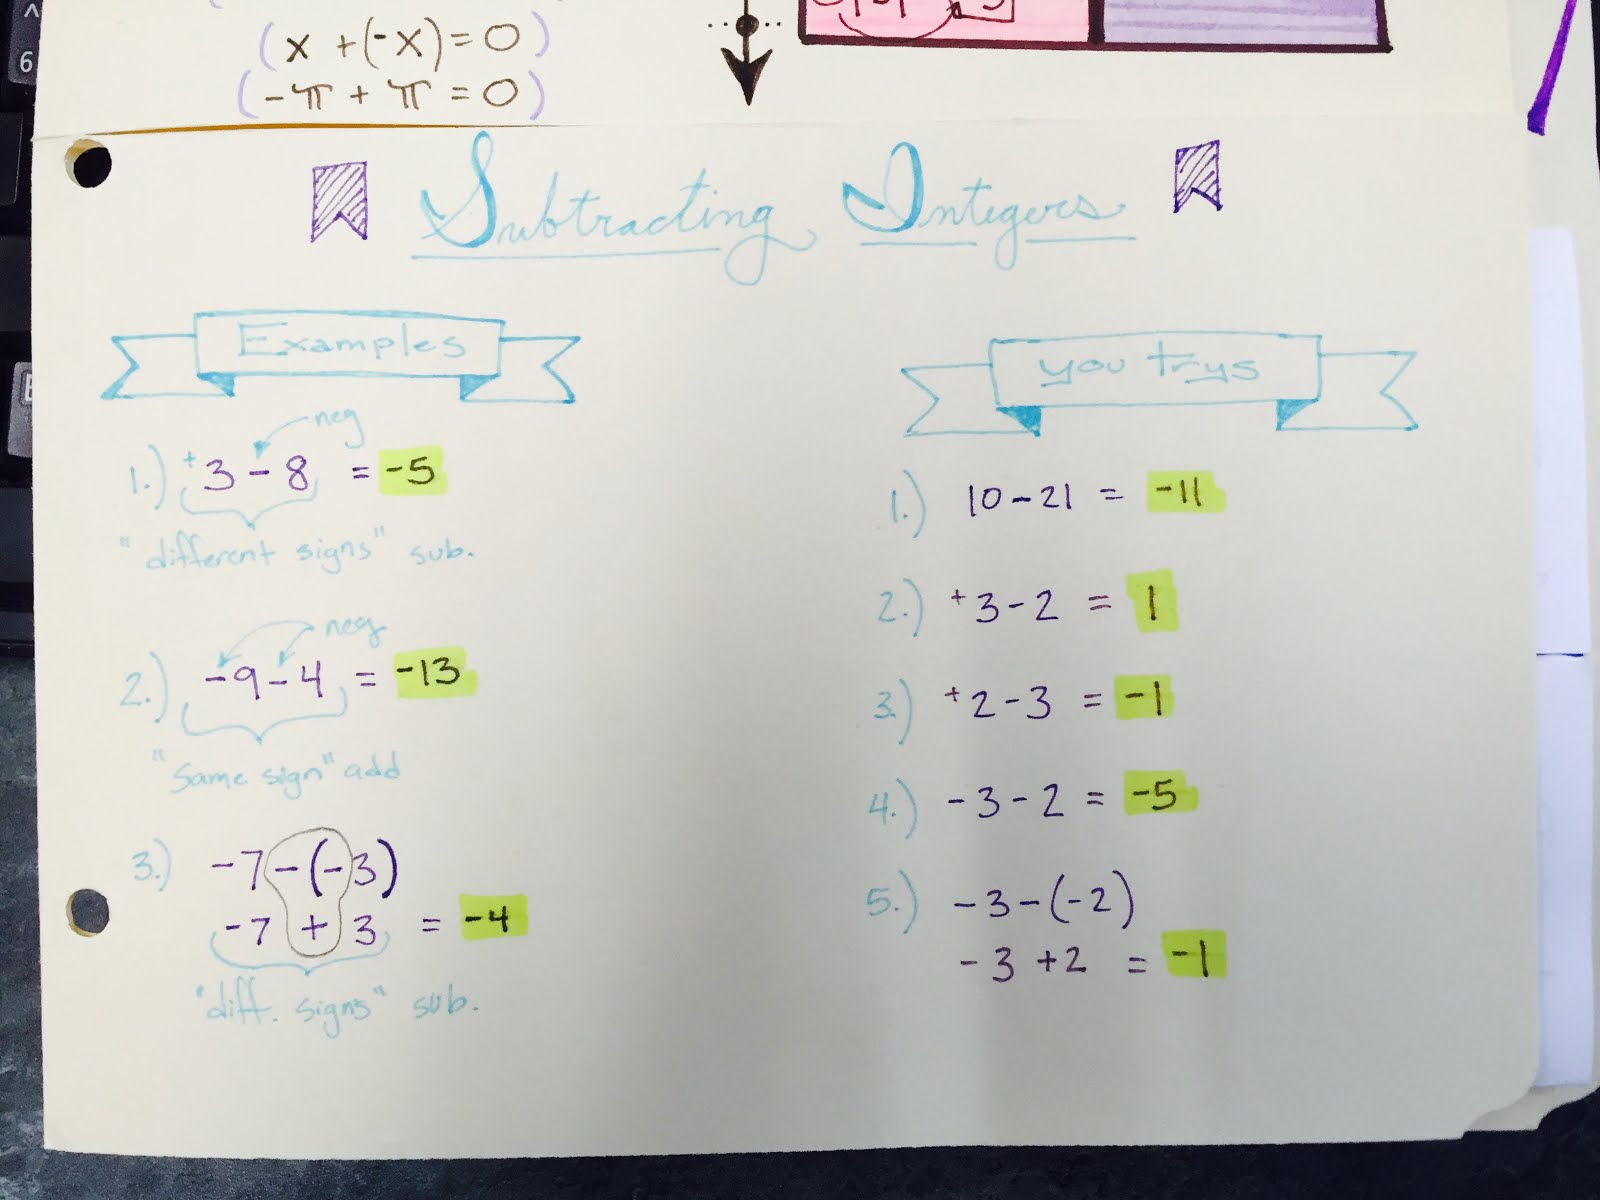 (x + (-x) = 0)
(-π + π = 0)
Subtracting Integers
Examples
neg
1.) +3 - 8 = -5
"different signs" sub.
neg
2.) -9 - 4 = -13
"Same sign" add
3.) -7 - (-3)
-7 + 3 = -4
"diff. signs" sub.
you trys
1.) 10 - 21 = -11
2.) +3 - 2 = 1
3.) +2 - 3 = -1
4.) -3 - 2 = -5
5.) -3 - (-2)
-3 + 2 = -1